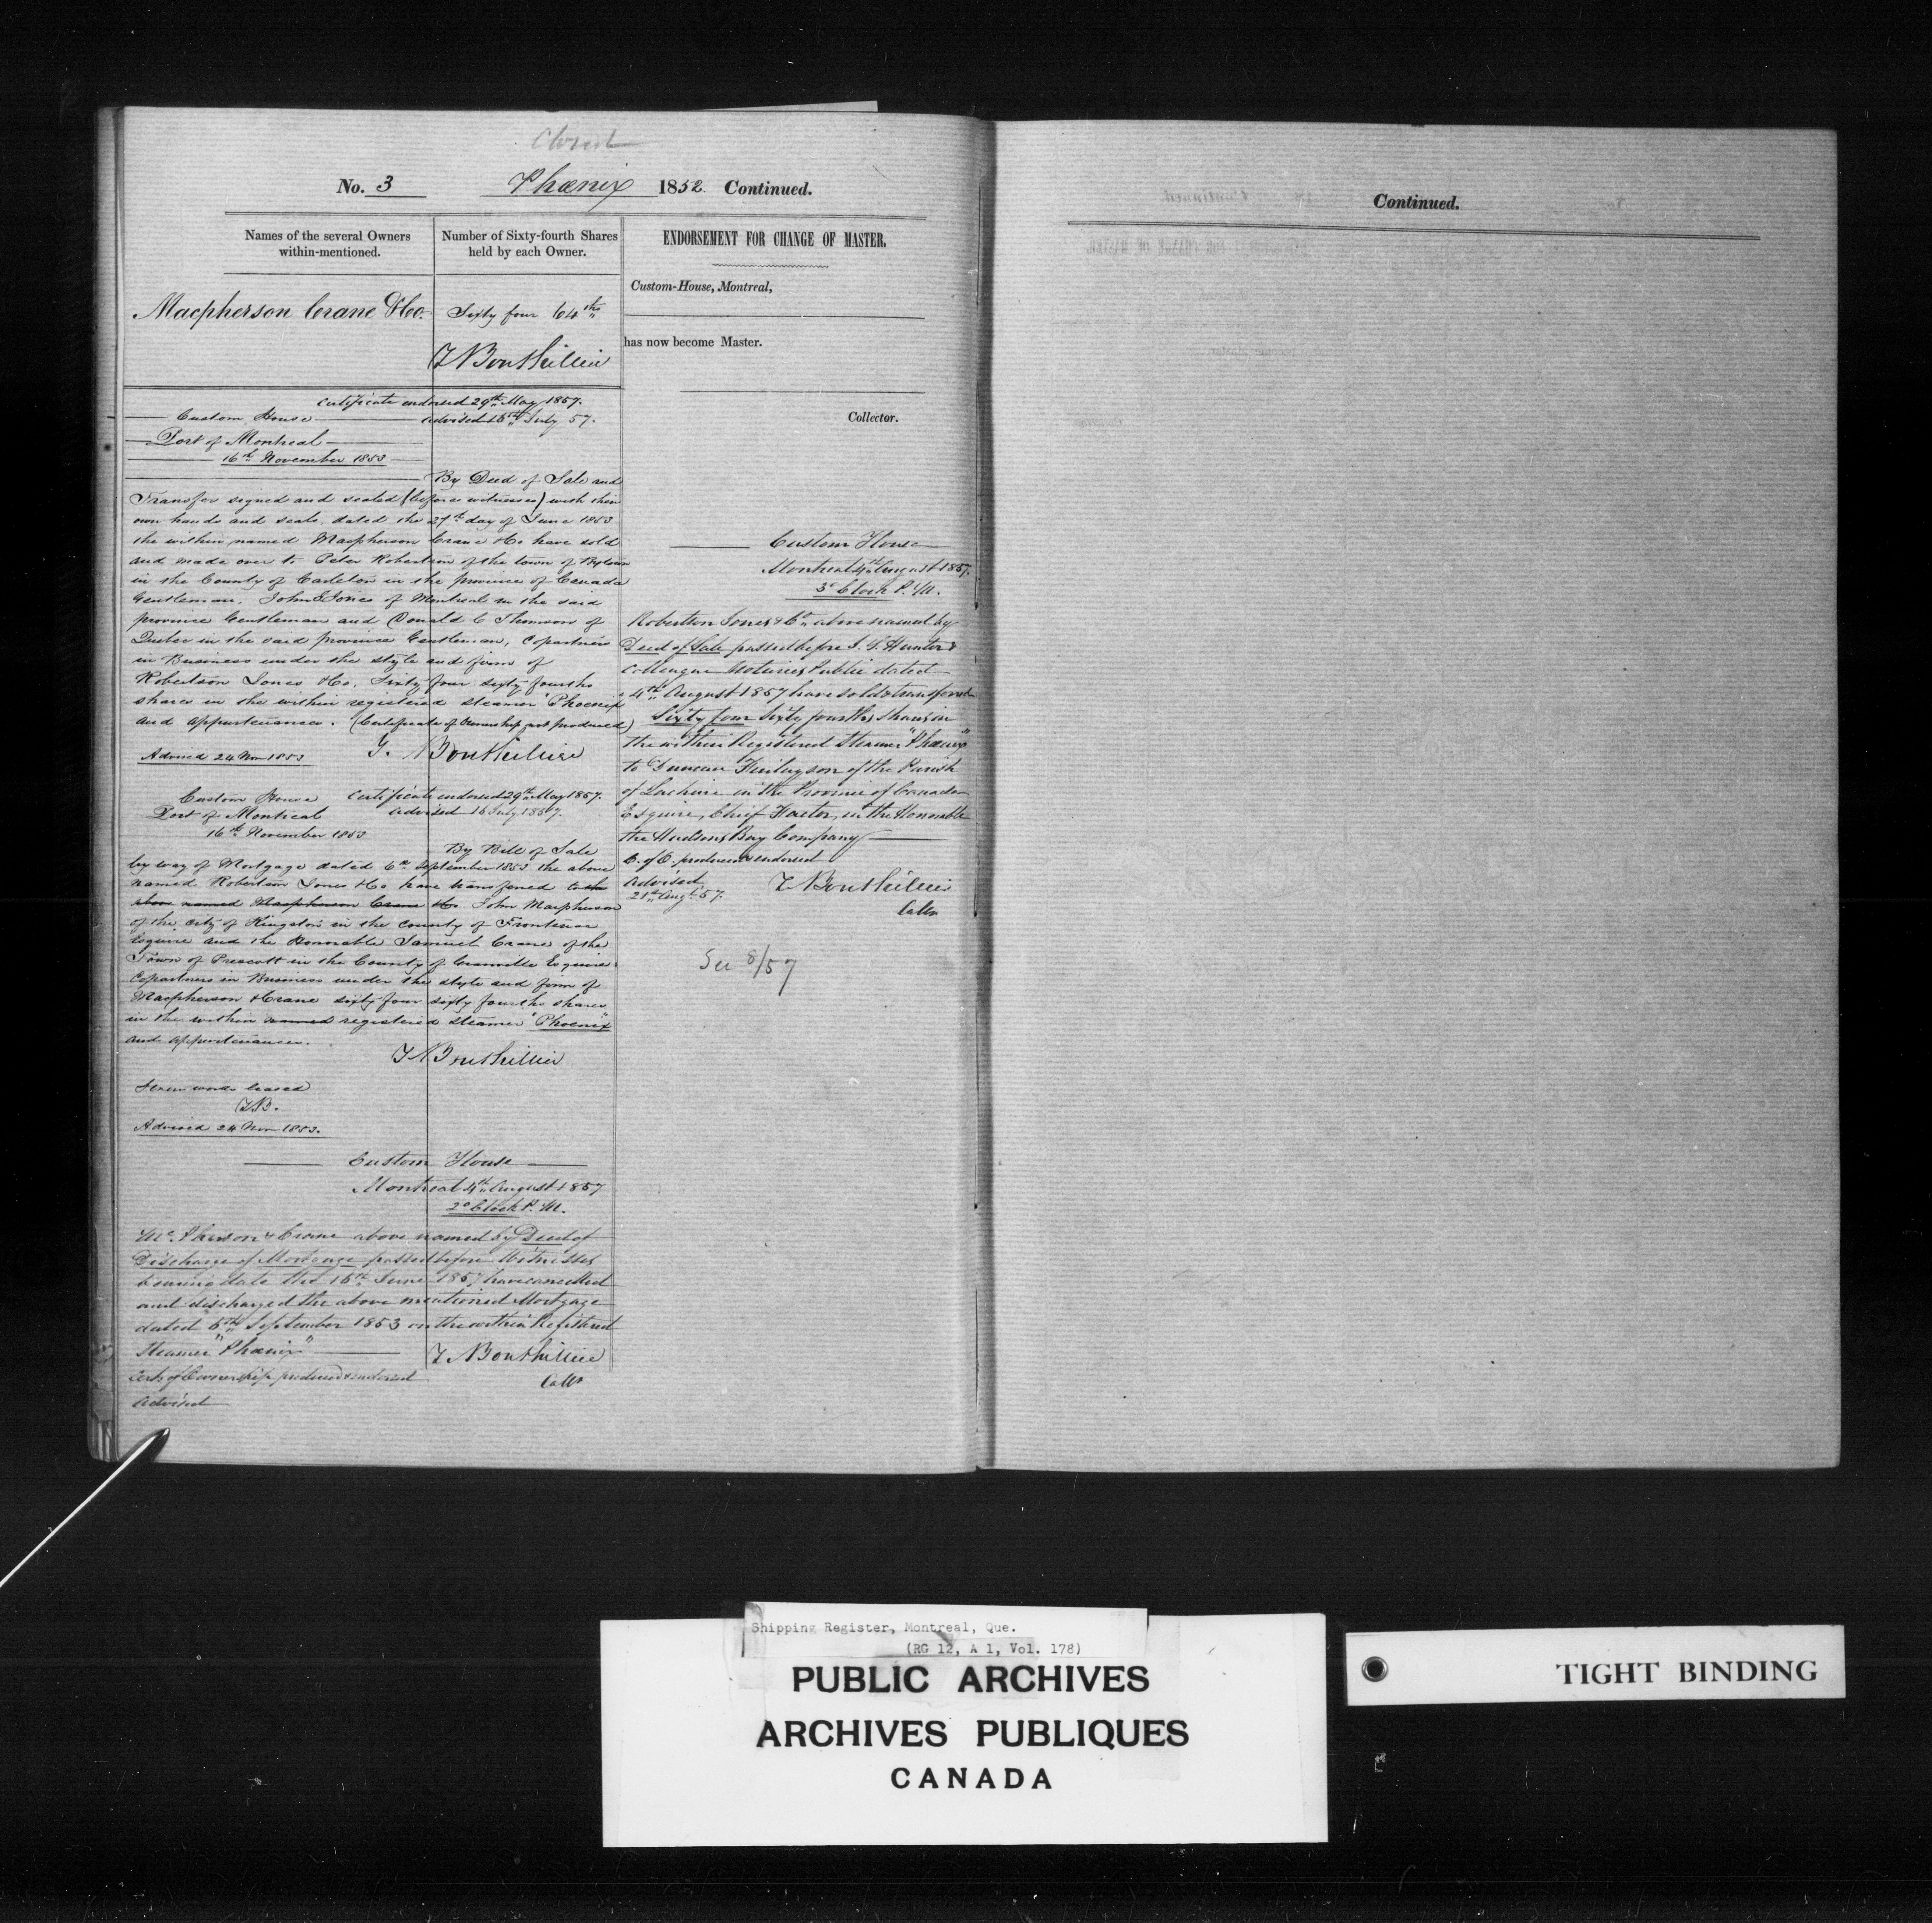 Closed
No. 3 Phœnix 1852 Continued.
Names of the several Owners
within-mentioned.
Number of Sixty-fourth Shares
held by each Owner.
Macpherson Crane & Co.
Sixty four 64ths
T Bouthillier
Certificate endorsed 29th May 1857.
Custom House
advised 16th July 57.
Port of Montreal
16th November 1853
By Deed of Sale and
Transfer signed and sealed (before witnesses) with their
own hands and seals, dated the 27th day of June 1853
the within named Macpherson Crane & Co have sold
and made over to Peter Robertson of the town of Bytown
in the County of Carleton in the province of Canada
Gentleman, John Jones of Montreal in the said
province Gentleman and Donald C Thomson of
Quebec in the said province Gentleman, Copartners
in Business under the style and firm of
Robertson Jones & Co, Sixty four sixty fourths
shares in the within registered steamer "Phoenix"
and appurtenances. (Certificate of Ownership not produced)
T. Bouthillier
Advised 24 Nov 1853
Custom House
Certificate endorsed 29th May 1857.
Port of Montreal
advised 16 July 1857.
16th November 1853
By Bill of Sale
by way of Mortgage dated 6th September 1853 the above
named Robertson Jones & Co have transferred to the
above named Macpherson Crane & Co John Macpherson
of the city of Kingston in the County of Frontenac
Esquire and the Honorable Samuel Crane of the
Town of Prescott in the County of Grenville Esquire
Copartners in Business under the style and firm of
Macpherson & Crane sixty four sixty fourths shares
in the within named registered steamer "Phoenix"
and appurtenances.
T Bouthillier
words erased
TB.
Advised 24 Nov 1853.
Custom House
Montreal 4th August 1857
2 o'Clock P.M.
McPherson & Crane above named by Deed of
Discharge of Mortgage passed before Witnesses
bearing date the 16th June 1857 have cancelled
and discharged the above mentioned Mortgage
dated 6th September 1853 on the within Registered
Steamer "Phœnix"
T. Bouthillier
Certe of Ownership produced & endorsed
Collr
Advised
ENDORSEMENT FOR CHANGE OF MASTER.
Custom-House, Montreal,
has now become Master.
Collector.
Custom House
Montreal 4th August 1857.
3 o'Clock P.M.
Robertson Jones & Co. above named by
Deed of Sale passed before J. S. Hunter &
Colleague Notaries Public dated
4th August 1857 have sold & transferred
Sixty four Sixty fourths Shares in
the within Registered Steamer "Phœnix"
to Duncan Finlayson of the Parish
of Lachine in the Province of Canada
Esquire, Chief Factor, in the Honorable
the Hudsons Bay Company
C. of O. produced & endorsed
Advised
T Bouthillier
21st Augt 57.
Collr
See 8/57
Continued.
Shipping Register, Montreal, Que.
(RG 12, A 1, Vol. 178)
PUBLIC ARCHIVES
ARCHIVES PUBLIQUES
CANADA
TIGHT BINDING